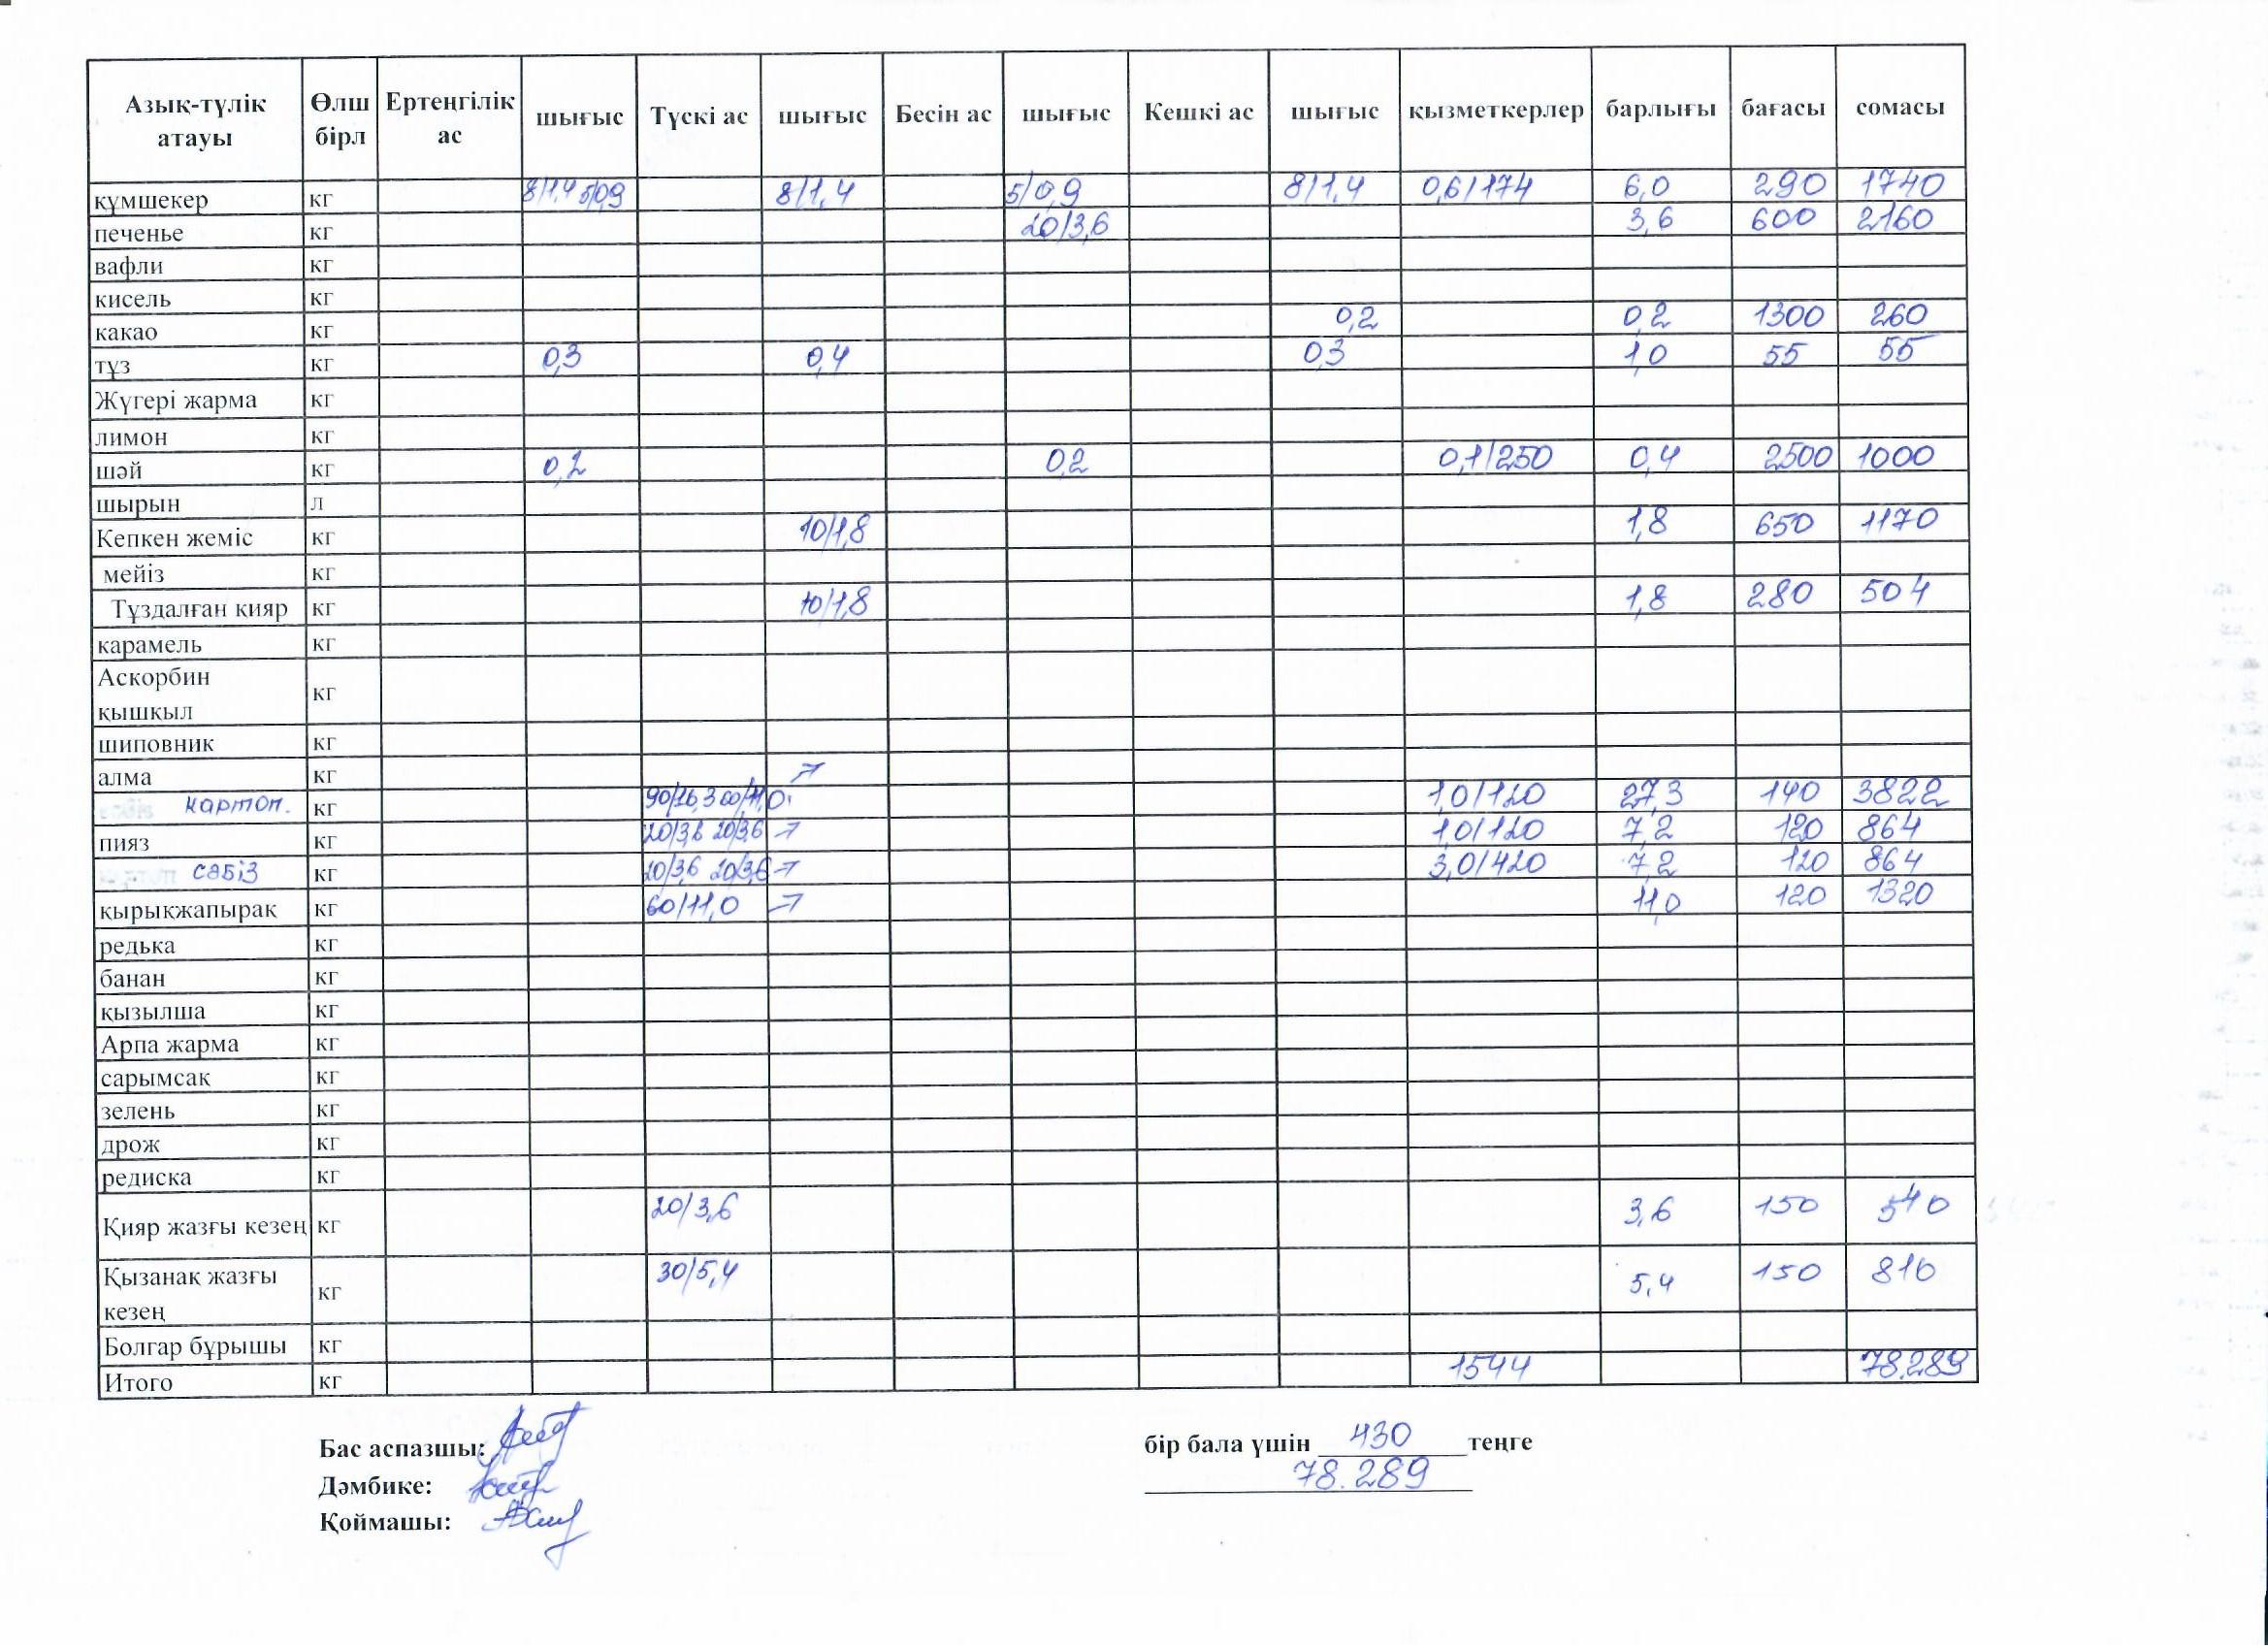 Азық-түлік атауы Өлш бірл Ертеңгілік ас шығыс Түскі ас шығыс Бесін ас шығыс Кешкі ас шығыс қызметкерлер барлығы бағасы сомасы
құмшекер кг 8/1,4 5/0,9 8/1,4 5/0,9 8/1,4 0,6/174 6,0 290 1740
печенье кг 20/3,6 3,6 600 2160
вафли кг
кисель кг
какао кг 0,2 0,2 1300 260
тұз кг 0,3 0,4 0,3 1,0 55 55
Жүгері жарма кг
лимон кг
шәй кг 0,2 0,2 0,1/250 0,4 2500 1000
шырын л
Кепкен жеміс кг 10/1,8 1,8 650 1170
мейіз кг
Тұздалған кияр кг 10/1,8 1,8 280 504
карамель кг
Аскорбин қышқыл кг
шиповник кг
алма кг
картоп. кг 90/16,3 60/11,0 1,0/120 27,3 140 3822
пияз кг 20/3,6 20/3,6 1,0/120 7,2 120 864
сәбіз кг 20/3,6 20/3,6 3,0/420 7,2 120 864
қырыққапырақ кг 60/11,0 11,0 120 1320
редька кг
банан кг
қызылша кг
Арпа жарма кг
сарымсақ кг
зелень кг
дрож кг
редиска кг
Қияр жазғы кезең кг 20/3,6 3,6 150 540
Қызанақ жазғы кезең кг 30/5,4 5,4 150 810
Болгар бұрышы кг
Итого кг 1544 78.289
Бас аспазшы: бір бала үшін 430 теңге
Дәмбике: 78.289
Қоймашы: